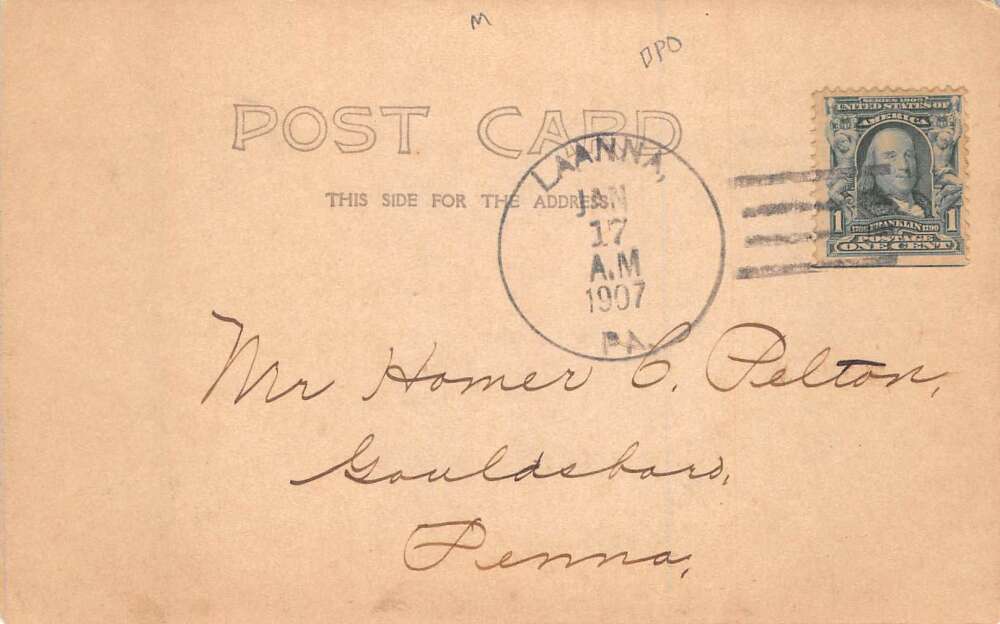 M
DPO
POST CARD
THIS SIDE FOR THE ADDRESS.
LAANNA,
JAN
17
A.M
1907
PA.
SERIES 1902
UNITED STATES OF
AMERICA
1 1706 FRANKLIN 1790 1
POSTAGE
ONE CENT
Mr Homer C. Pelton,
Gouldsboro,
Penna,